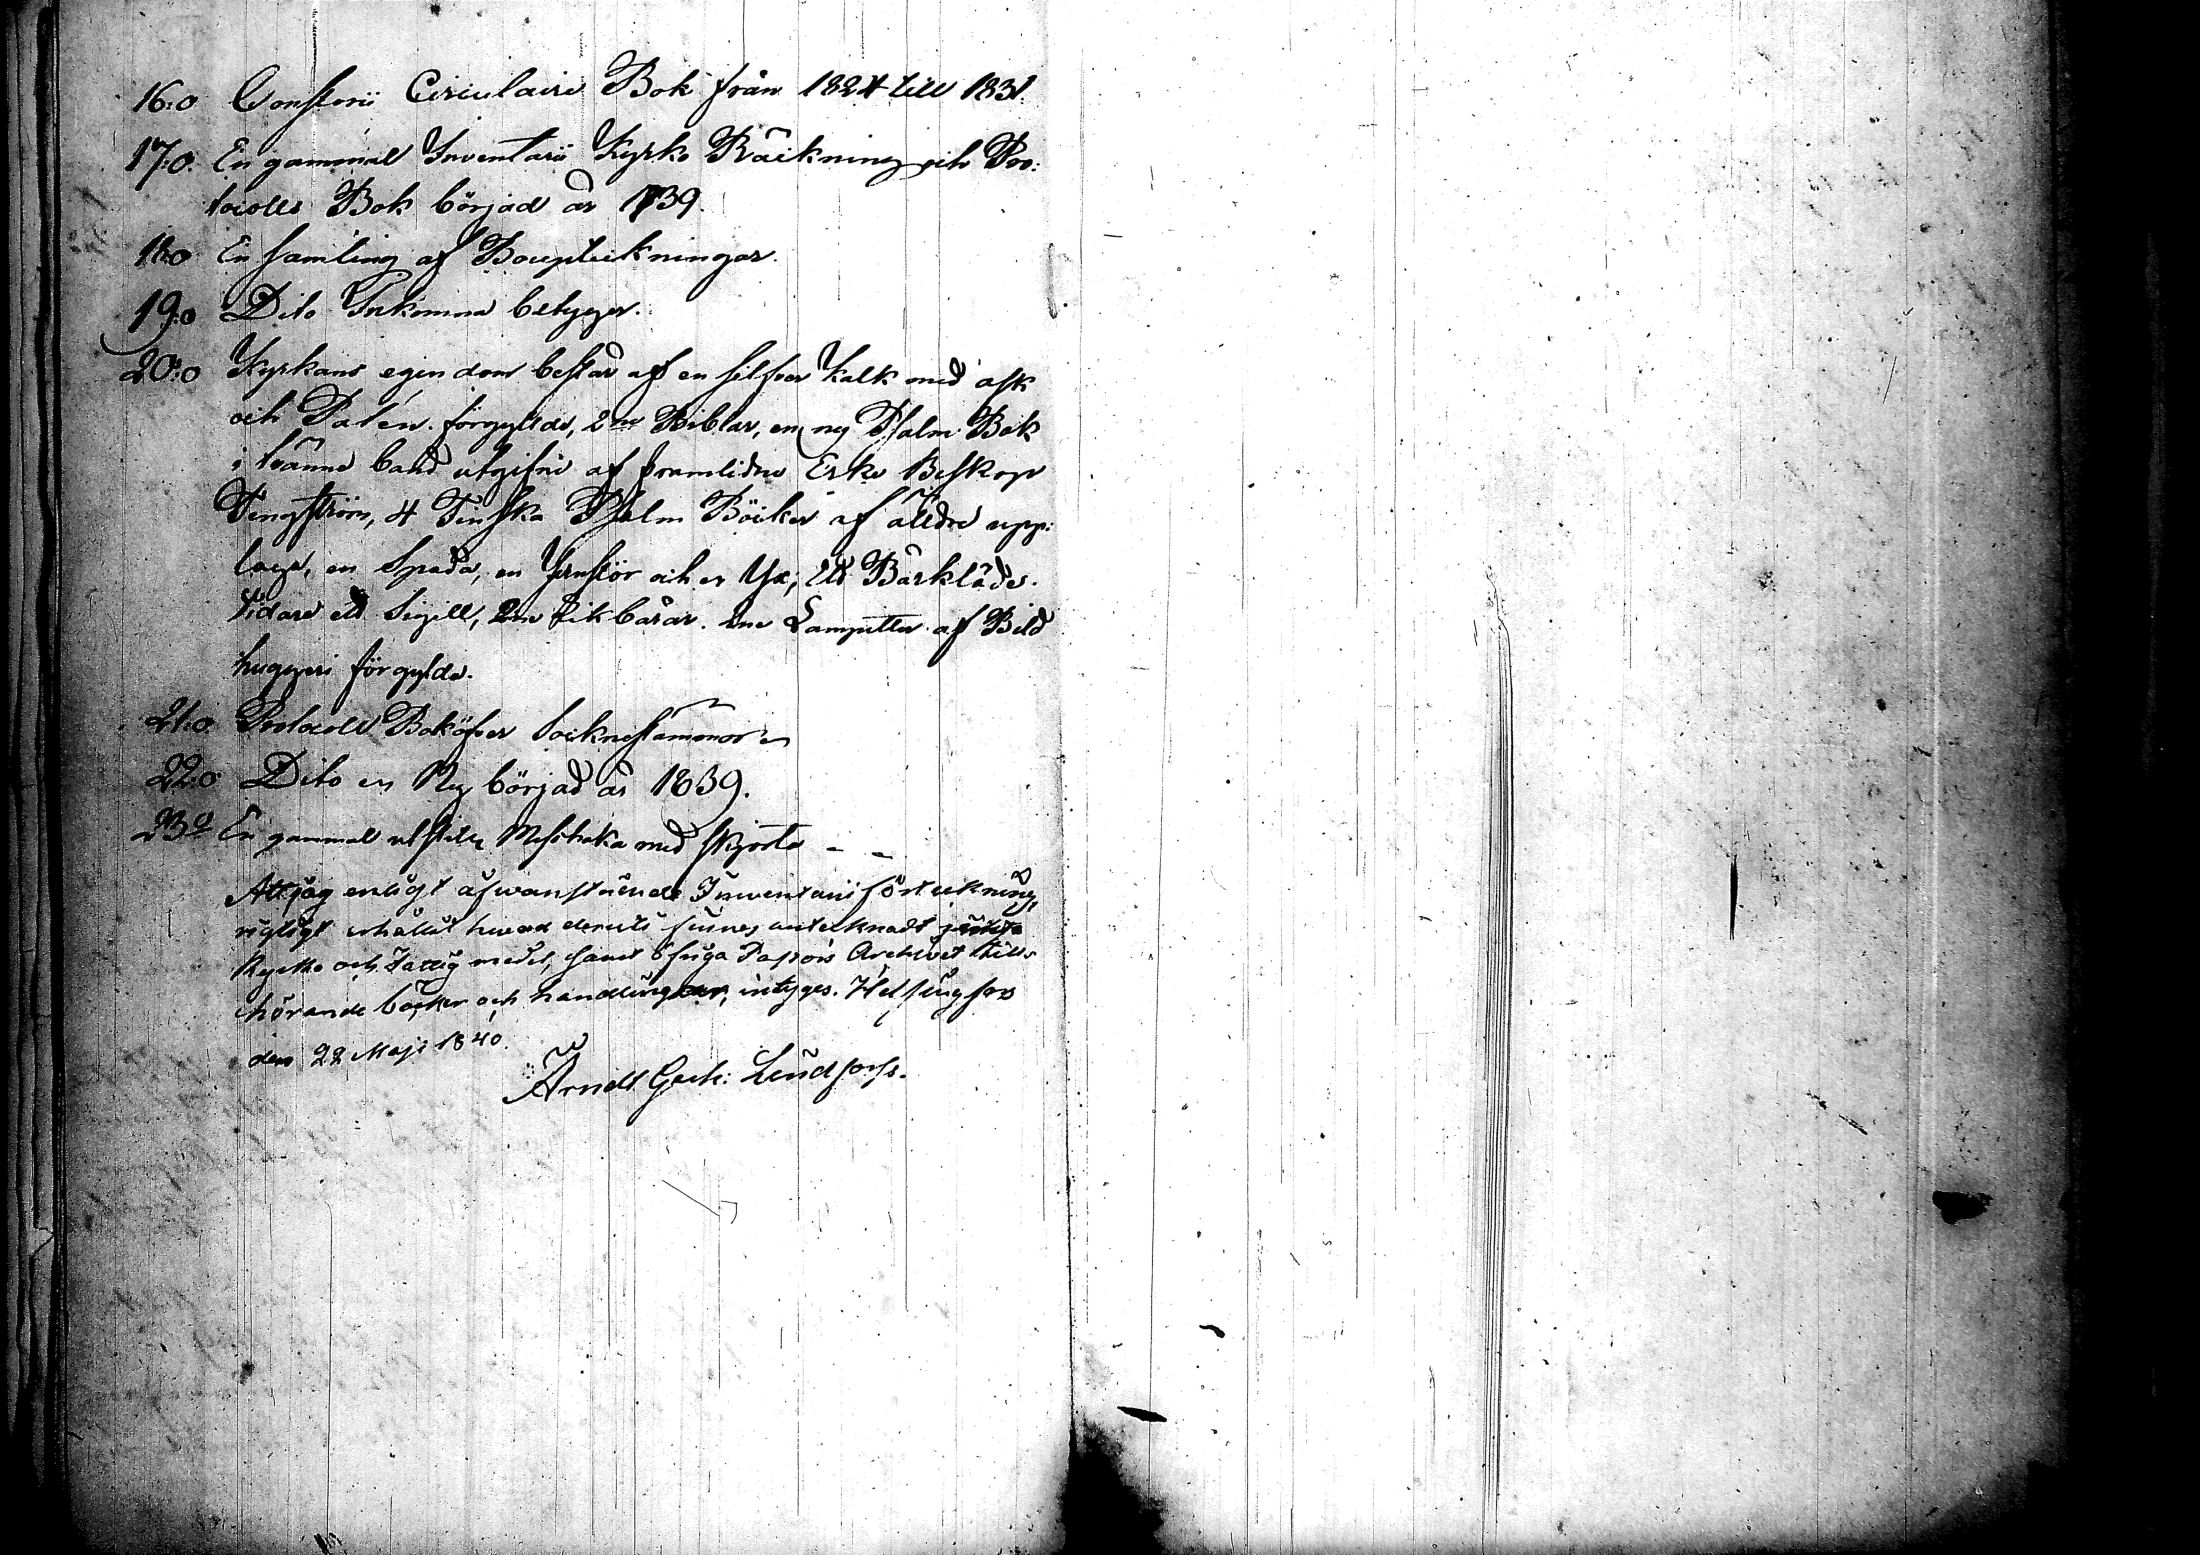 16:o Consistorii Circulaire Bok från 1824 till 1831.
17:o. En gammal Inventarii Kyrko Räckning och Pro:
tocolls Bok börjad år 1739.
18:o En samling af Boupteckningar.
19:o Dito Inkomna betyger.
20:o Kyrkans egendom består af en silfver Kalk med ask
och Patén förgyllde, 2ne Biblar, en ny Psalm Bok
i tvänne band utgifne af framlidne Erke Biskopp
Tengström, 4 Finska Psalm Böcker af äldre upp:
laga, en Spada, en Jernstör och en Yx, Ett Bårkläde.
Vidare ett Sigill, 2ne Likbårar. 2ne Lampetter af Bild
huggeri förgylda.
21:o Protocoll Bok öfver Sockne stämmor
22:o Dito en Ny börjad år 1839.
23:o En gammal utsliten Messhaka med skjorta - -
Att jag enligt ofwanstående Inwentarii förteckning,
rigtigt erhållit hwad deruti finnes antecknadt
Kyrko och Fattig medel, samt öfriga Pastors Archivet till-
hörande böcker och handlingar, intygas. Helsingfors
den 22 Maji 1840.
Arndt Gech: Lindfors.